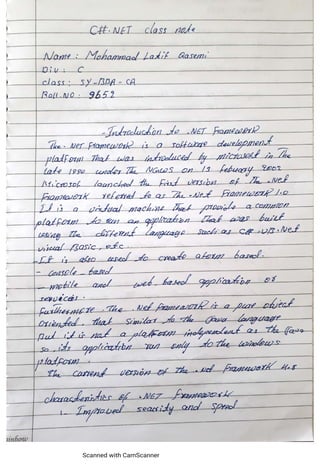 C#.NET class note
Name : Mohammad Latif Qasemi
Div : C
class : SY-BBA-CA
Roll.NO : 9652
- Introduction to .NET FrameWork
The .NET FrameWork is a software development
platform That was introduced by microsoft in The
late 1990 under The NGWS on 13 february 2002
Microsof launched the First version of The .Net
Framework referred to as The .Net Framework 1.0
It is a virtual machine That provide a common
platform to run an application That was built
using The different language such as C# .VB.Net
visual Basic , etc.
- It is also used to create a form based.
- console based
- mobile and web based application or
services.
Furthermore The .Net framework is a pure object
oriented that similar to the java language
But it is not a platform independent as The java
so its application run only to the windows
platform.
The current version of The .Net framework 4.8
characteristics of .NET Framework
1- Improved security and speed
ainbow
Scanned with CamScanner